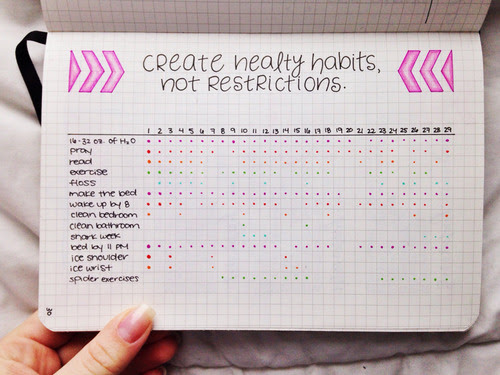 CReate healty habits,
not RestRictions.
1 2 3 4 5 6 7 8 9 10 11 12 13 14 15 16 17 18 19 20 21 22 23 24 25 26 27 28 29
16-32 oz. of H₂O
pray
read
exercise
floss
make the bed
wake up by 8
clean bedroom
clean bathroom
shark week
bed by 11 PM
ice shoulder
ice wrist
spider exercises
30